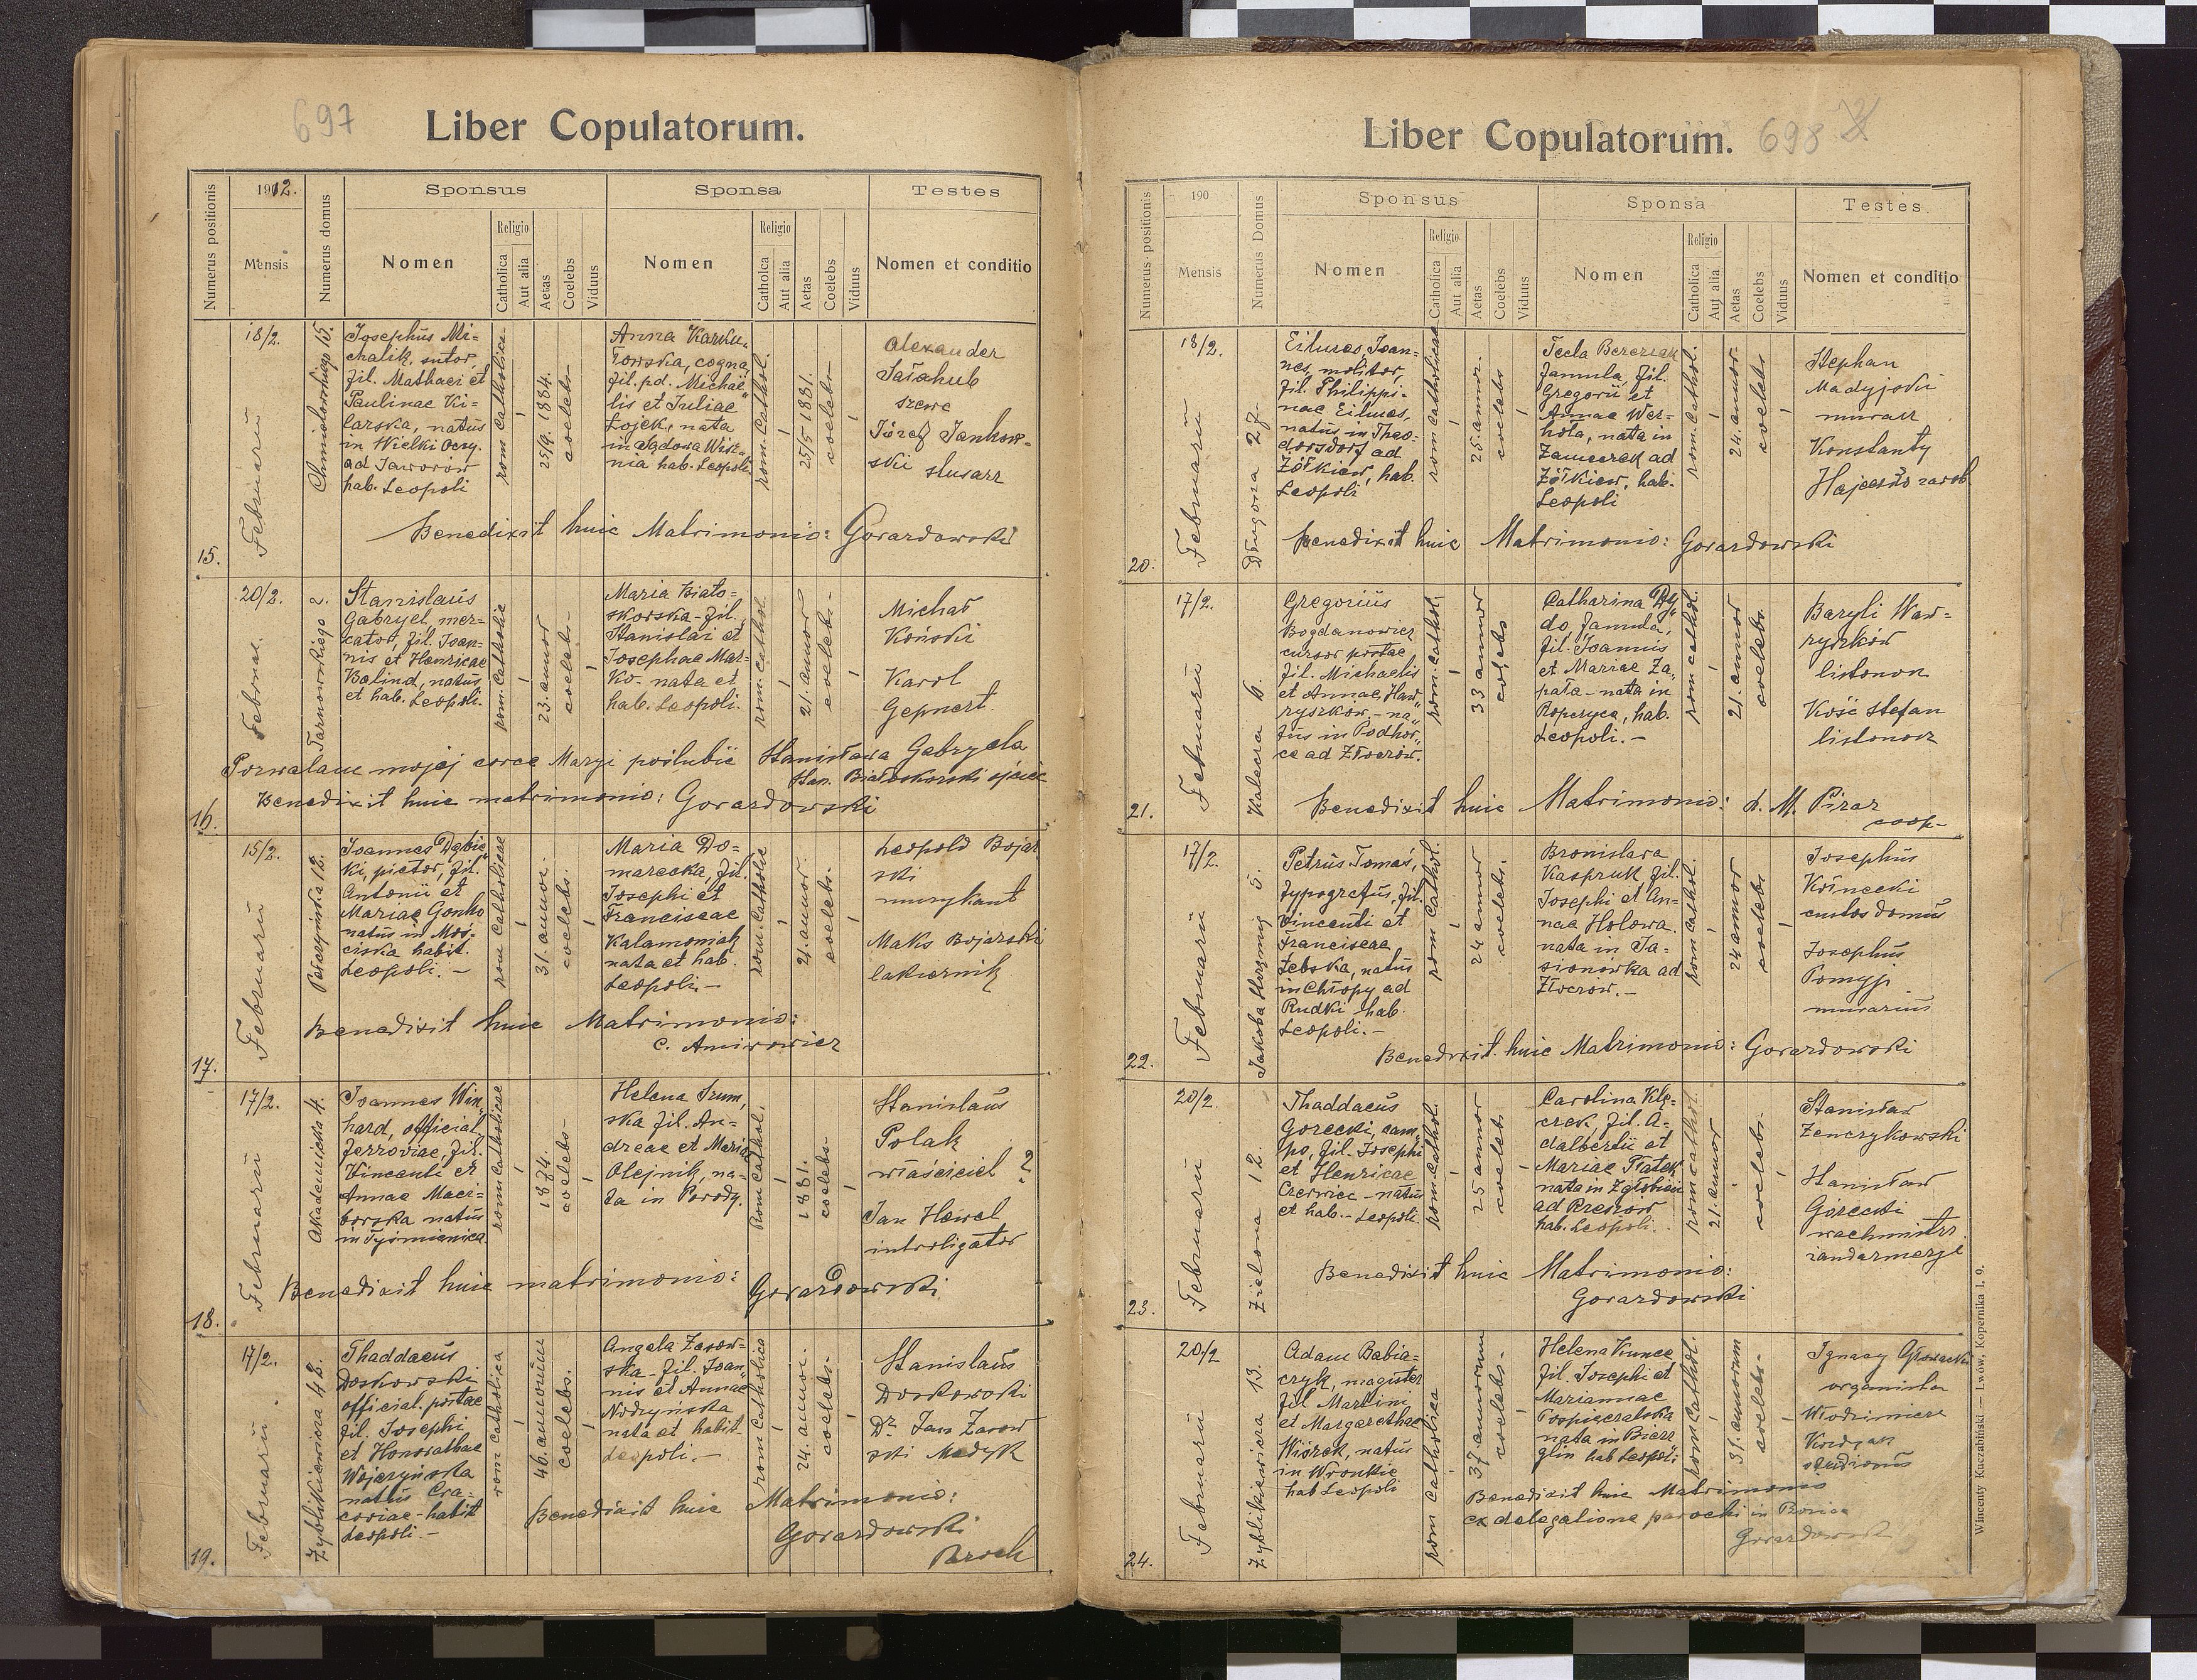 697
Liber Copulatorum.
Numerus positionis
1912.
Mensis
Numerus domus
Sponsus
Nomen
Religio
Catholica
Aut alia
Aetas
Coelebs
Viduus
Sponsa
Nomen
Religio
Catholca
Aut alia
Aetas
Coelebs
Viduus
Testes
Nomen et conditio
15.
18/2.
Februarii
Chmielowskiego 15.
Josephus Mi=
chalik, sutor,
fil. Mathaei et
Paulinae Ki=
larska, natus
in Wielki Oczy.
ad Jaworów
hab. Leopoli
rom Catholicae
25/9. 1884.
coelebs
Anna Karku,
towska, cogna,
fil. pd. Michae
lis et Juliae
Łojek, nata
in Sądowa Wisz,
nia hab. Leopoli
rom. Cathol.
25/5 1881.
coelebs
Alexander
Sałahub
szewc
Józef Jankow-
ski slusarz
Benedixit huic Matrimonio: Gorazdowski
16.
20/2.
Februar.
Tarnowskiego 2.
Stanislaus
Gabryel, mer=
cator, fil. Joan=
nis et Henricae
Bolind, natus
et hab. Leopoli.
rom. Catholic
23. annor
coelebs
Maria Biało=
skorska - fil.
Stanislai et
Josephae Mar=
ko. nata et
hab. Leopoli.
rom. Cathol.
21. annor
coelebs
Michał
Koński
Karol
Gepnert.
Pozwalam mojej corce Maryi poślubić Stanisława Gabryela
Stan. Białoskorski ojciec
Benedixit huic matrimonio: Gorazdowski
17.
15/2.
Februarii
12.
Joannes Dąbic
ki, pictor, fil.
Antonii et
Mariae Gonko
natus in Moś=
ciska habit.
Leopoli. -
rom Catholicae
31. annor.
coelebs.
Maria Do=
marecka, fil.
Josephi et
Franciscae
Kalamoniak
nata et hab.
Leopoli. -
rom. Catholic
21. annor.
coelebs.
Leopold Bojar
ski
muzykant
Maks Bojarski
lakiernik
Benedixit huic Matrimonio:
C. Amirowicz
18.
17/2.
Februarii
Akademicka 4.
Joannes Win,
hard, official.
ferroviae, fil.
Vincenti et
Annae Maci=
borska natus
in Tyśmienica
rom Catholicae
1874.
coelebs
Helena Srum,
ska fil. An=
dreae et Maria
Olejnik, na=
ta in Porody.
Rom Cathol.
1881.
coelebs
Stanislaus
Polak
właściciel ?
Jan Hewel
introligator
Benedixit huic matrimonio: Gorazdowski
19.
17/2.
Februarii.
Zyblikiewicza 42.
Thaddaeus
Doskowski
official. postae
fil. Josephi
et Honorathae
Wojczyńska
natus Cra=
coviae - habit
Leopoli. -
rom Catholica
46. annorum
coelebs.
Angela Zarow=
ska - fil. Joan
nis et Annae
Nodzyńska
nata et habit
Leopoli. -
rom Catholica
24. annor.
coelebs.
Stanislaus
Doskowski
Dr. Jan Zarow
ski Medyk
Benedixit huic Matrimonio:
Gorazdowski
Broch
Liber Copulatorum.
698
Numerus positionis
190
Mensis
Numerus Domus
Sponsus
Nomen
Religio
Catholica
Aut alia
Aetas
Coelebs
Viduus
Sponsa
Nomen
Religio
Catholica
Aut alia
Aetas
Coelebs
Viduus
Testes
Nomen et conditio
20.
18/2.
Februarii
Długosza 27.
Eilmes Joan=
nes, molitor,
fil. Philippi-
nae Eilmes,
natus in Theo=
dorsdorf ad
Żółkiew, hab.
Leopoli
rom Catholicae
25. annor.
coelebs
Tecla Bereziak
famula, fil.
Gregorii et
Annae Wer=
hola, nata in
Zameczek ad
Żółkiew, hab.
Leopoli
rom. Cathol.
24. annor.
coelebs
Stephan
Madyjski
murarz
Konstanty
Benedixit huic Matrimonio: Gorazdowski
21.
17/2.
Februarii
Kalecza 6.
Gregorius
Bogdanowicz
cursor postae
fil. Michaelis
et Annae, Haw
ryszków. - na,
tus in Podhor,
ce ad Złoczów.
rom. Cathol
33 annor
coelebs
Catharina Dy
do, famula,
fil. Joannis
et Mariae Za,
pała - nata in
Ropczyce, hab.
Leopoli. -
rom cathol.
21. annor
coelebs.
Baryli Haw-
ryszków
listonon
Kość Stefan
listonosz
Benedixit huic Matrimonio: d. M. Piraz
coop.
22.
17/2.
Februarii
5.
Petrus Tomaś,
typografus, fil.
Vincenti et
Franciscae
Zebska, natus
in Chłopy ad
Rudki hab.
Leopoli. -
rom Cathol.
24 annor
coelebs.
Bronislava
Kaspruk fil.
Josephi et An=
nae Holowa.
nata in Ja=
sionówka ad
Złoczow. -
rom Cathol.
24 annor
coelebs
Josephus
Kośnecki
custos domus
Josephus
Pomyji
murarius
Benedixit huic Matrimonio: Gorazdowski
23.
20/2.
Februarii
Zielona 12.
Thaddaeus
Gorecki, cam
po, fil. Josephi
et Henricae
Czerwiec - natus
et hab. - Leopoli.
rom. Cathol.
25 annor
coelebs
Carolina Klę=
czek, fil. A=
dalbertii et
Mariae Piątek
nata in Zgłobień
ad Rzeszow
hab. Leopoli.
rom cathol.
21. annor
coelebs.
Stanisław
Zenczykowski
Stanisław
Górecki
wachmistrz
żandarmerji
Benedixit huic Matrimonio:
Gorazdowski
24.
20/2
Februarii
Zyblikiewicza 13.
Adam Babia=
czyk, magister
fil Martini
et Margarethae
Wiórek, natus
in Wronkie
hab Leopoli
rom Catholica
37 annorum
coelebs.
Helena Kunce
fil. Josephi et
Mariannae
Pospieszalska
nata in Bierz
glin hab Leopoli
rom Cathol.
31. annorum
coelebs.
Ignacy Głowacki
organista
Włodzimierz
studiosus
Benedixit huic Matrimonio
ex delegatione parochi in
Gorazdowski
Wincenty Kuczabiński. — Lwów, Kopernika 1. 9.